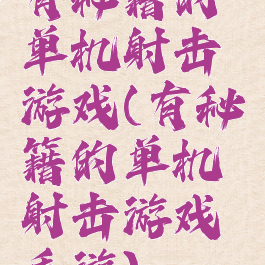 有秘籍的
单机射击
游戏(有秘
籍的单机
射击游戏
手游)